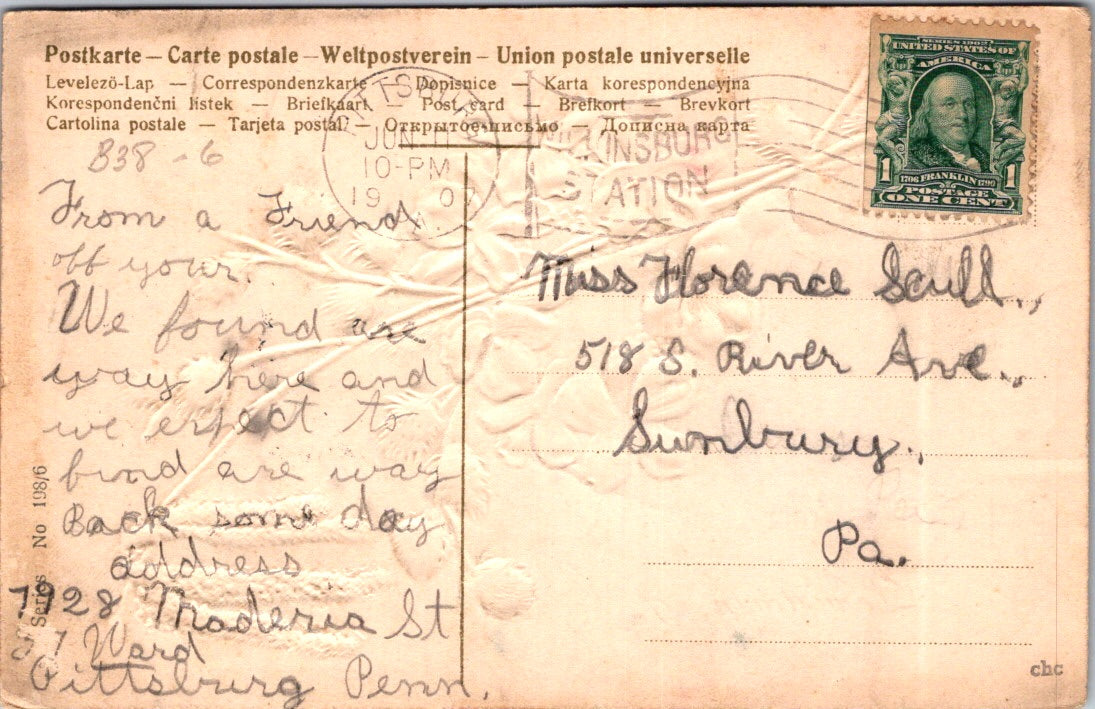 Postkarte — Carte postale — Weltpostverein — Union postale universelle
Levelező-Lap — Correspondenzkarte — Dopisnice — Karta korespondencyjna
Korespondenční lístek — Briefkaart — Post card — Brefkort — Brevkort
Cartolina postale — Tarjeta postal — Открытое письмо — Дописна карта
B38 - 6
JUN 11
10-PM
1907
WILKINSBURG
STATION
SERIES 1902
UNITED STATES OF
AMERICA
1706 FRANKLIN 1790
1 POSTAGE 1
ONE CENT
From a Friend
off your.
We found are
way here and
we expect to
find are way
Back some day
address
7928 Maderia St
Ward
Pittsburg Penn.
Miss Florence Scull.,
518 S. River Ave.,
Sunbury.,
Pa.
Series No 198/6
chc